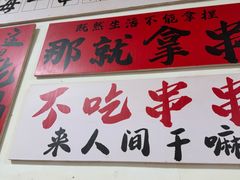 既然生活不能拿捏
那就拿串
不吃串串
来人间干嘛